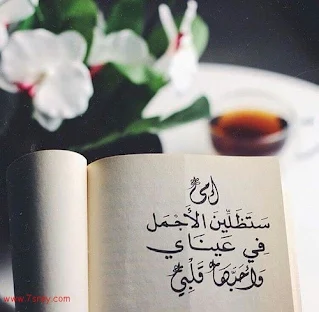 أمي
ستظلين الأجمل
في عيناي
وأحبها قلبي
www.7sriy.com